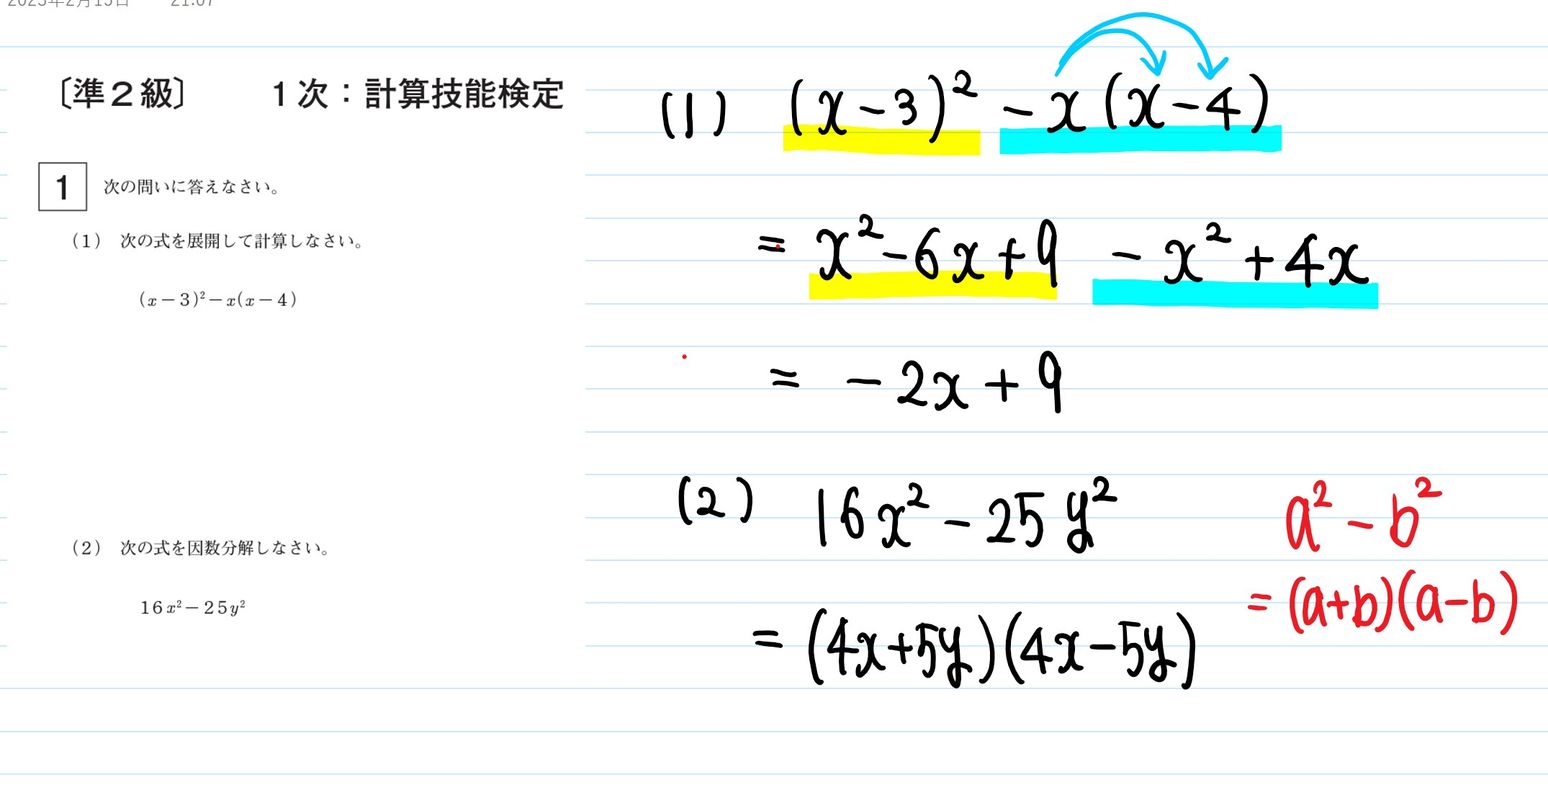 〔準２級〕　１次：計算技能検定
1 次の問いに答えなさい。
（1） 次の式を展開して計算しなさい。
(x－3)²－x(x－4)
（2） 次の式を因数分解しなさい。
16x²－25y²
(1) (x-3)² -x(x-4)
= x²-6x+9 -x²+4x
= -2x+9
(2) 16x²-25y²
= (4x+5y)(4x-5y)
a²-b²
= (a+b)(a-b)